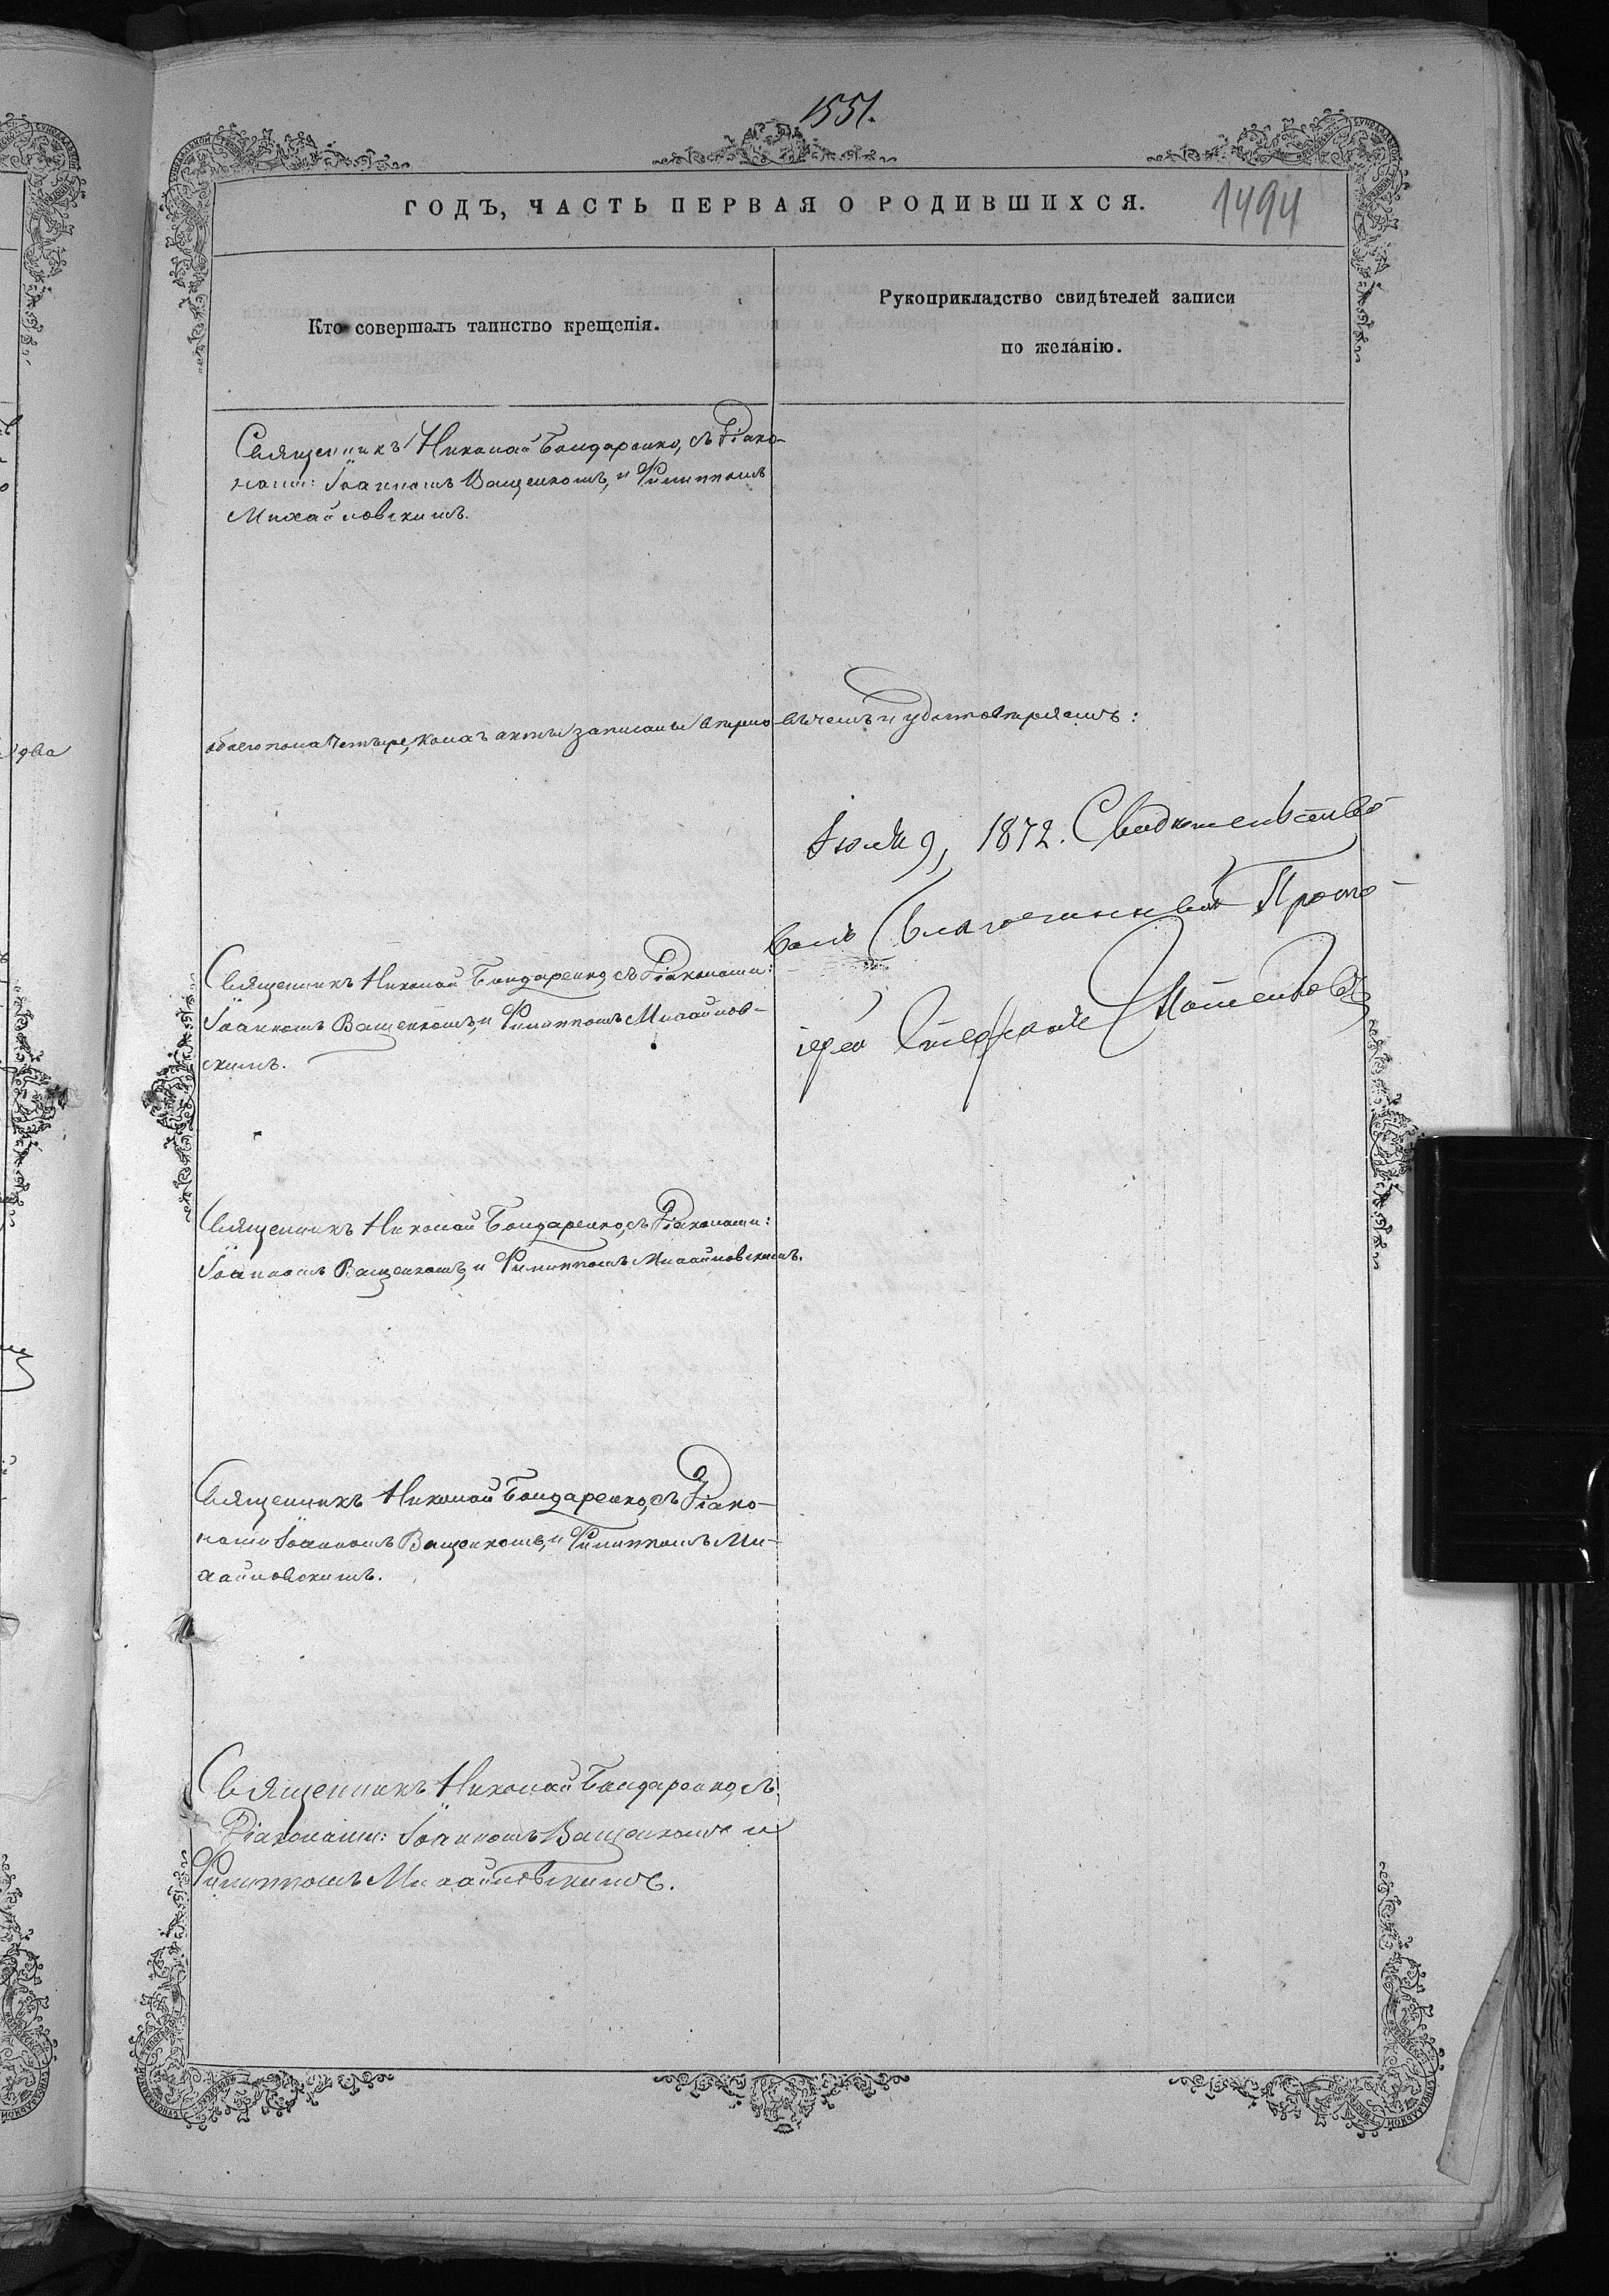 1551.
ГОДЪ, ЧАСТЬ ПЕРВАЯ О РОДИВШИХСЯ.
1494
Кто совершалъ таинство крещенія.
Рукоприкладство свидѣтелей записи
по желанію.
Священникъ Николай Бондаренко, съ Діако-
нами: Іоанномъ Ващенкомъ, и Филиппомъ
Михайловскимъ.
обоего пола четыре, коихъ акты записаны вѣрно въ чемъ и удостовѣряемъ:
Іюля 9, 1872. Свидѣтельство-
валъ Благочинный Прото-
іерей Стефанъ
Священникъ Николай Бондаренко, съ Діаконами:
Іоанномъ Ващенкомъ, и Филиппомъ Михайлов-
скимъ.
Священникъ Николай Бондаренко, съ Діаконами:
Іоанномъ Ващенкомъ, и Филиппомъ Михайловскимъ.
Священникъ Николай Бондаренко, съ Діако-
нами Іоанномъ Ващенкомъ, и Филиппомъ Ми-
хайловскимъ.
Священникъ Николай Бондаренко, съ
Діаконами: Іоанномъ Ващенкомъ и
Филиппомъ Михайловскимъ.
два